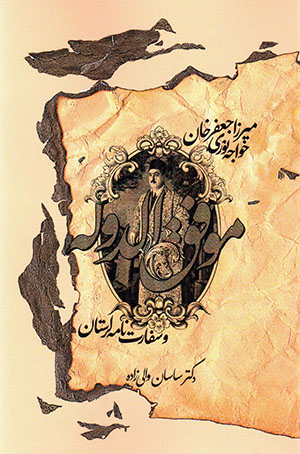 میرزا جعفر خان
خواجه نوری
موفق الدوله
و سفارت نامه لرستان
دکتر ساسان والی زاده